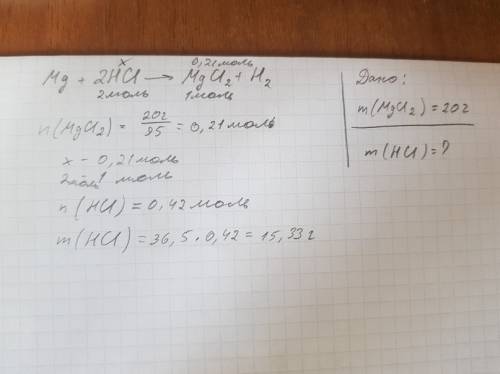 x 0,21 моль
Mg + 2HCl → MgCl₂ + H₂
2 моль 1 моль
n(MgCl₂) = 20г/95 = 0,21 моль
x – 0,21 моль
2 моль 1 моль
n(HCl) = 0,42 моль
m(HCl) = 36,5 · 0,42 = 15,33 г
Дано:
m(MgCl₂) = 20г
m(HCl) = ?